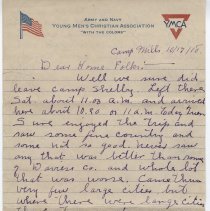 ARMY AND NAVY
YOUNG MEN'S CHRISTIAN ASSOCIATION
"WITH THE COLORS"
YMCA
Camp Mills 10/17/18.
Dear Home Folks:
Well we sure did
leave camp Shelby. Left there
Sat. about 11.00 A.M. and arrived
here about 10.30 or 11 A.M. today
I sure enjoyed the trip and
saw some fine country and
some not so good. never saw
any that was better than some
of Daviess Co. and whole lot
that was worse. Came thru
very few large cities but
where there were large cities